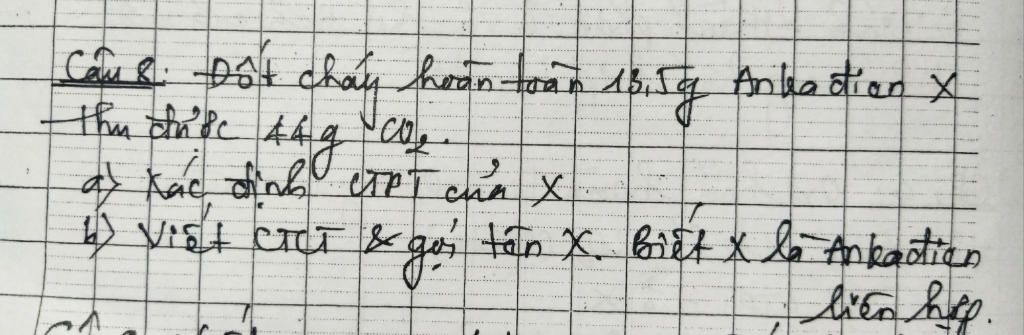 Câu 8: Đốt cháy hoàn toàn 13,5g Ankađien X
thu được 44g CO2.
a) Xác định CTPT của X
b) Viết CTCT & gọi tên X. Biết X là Ankađien
liên hợp.